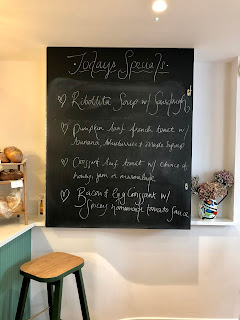 Todays Specials
Ribollita Soup w/ Sourdough
Pumpkin loaf french toast w/
banana, blueberries & maple syrup
Croissant loaf toast w/ choice of
honey, jam or marmalade
Bacon & Egg Croissant w/
Spicey homemade tomato sauce